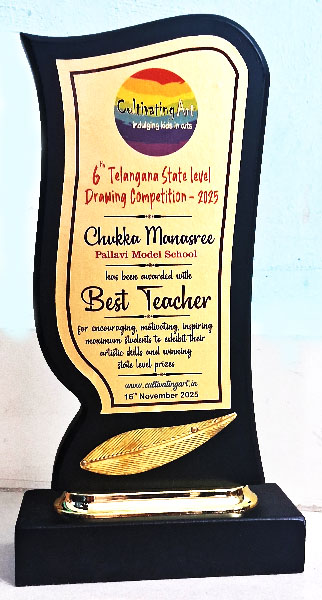 Cultivating Art
Indulging kids in arts
6th Telangana State level
Drawing Competition - 2025
Chukka Manasree
Pallavi Model School
has been awarded with
Best Teacher
for encouraging, motivating, inspiring
maximum students to exhibit their
artistic skills and winning
state level prizes
www.cultivatingart.in
16th November 2025